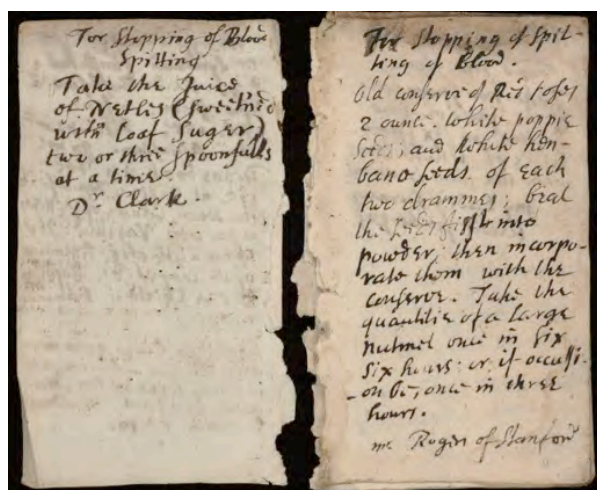 For Stopping of Blood
Spitting
Take the Juice
of Netles (sweetned
with loaf Suger)
two or three spoonfulls
at a time.
Dr. Clark.
For Stopping of Spit-
ting of Blood.
Old conserve of Red roses
2 ounce. white poppie
seeds, and white hen-
bane seeds of each
two drammes; beat
the seeds first into
powder, then incorpo-
rate them with the
conserve. Take the
quantitie of a large
nutmeg once in six
six hours; or if occassi-
-on be, once in three
hours.
mr Rogers of Stanford